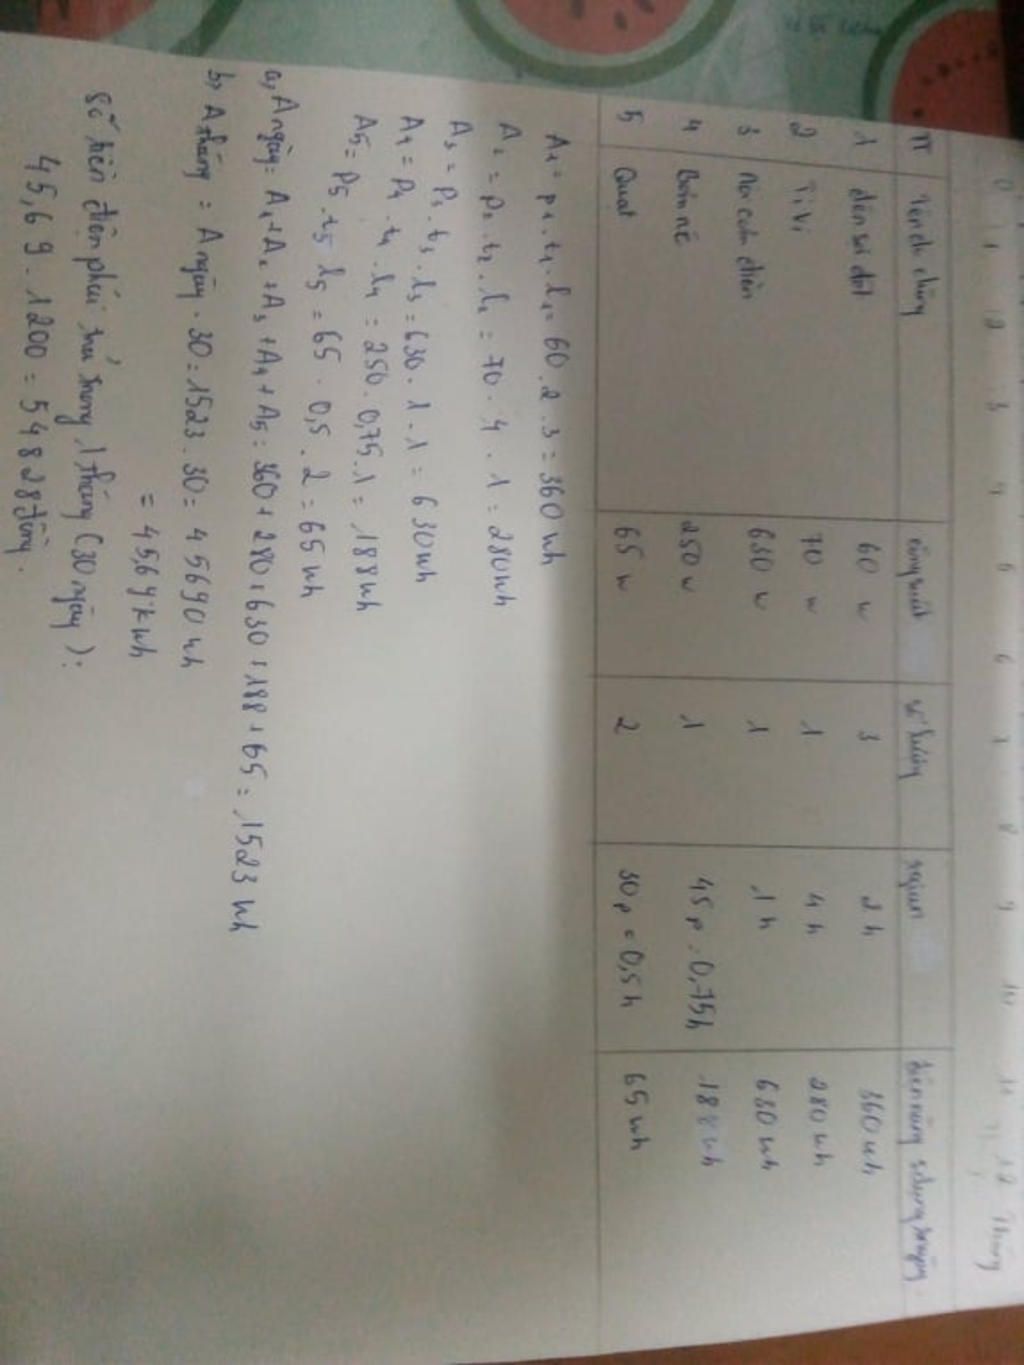 0 1 2 3 4 5 6 7 8 9 10 11 12 Tháng
TT Tên đồ dùng công suất số lượng tgian điện năng sdụng trngày
1 đèn sợi đốt 60 w 3 2 h 360 wh
2 Ti Vi 70 w 1 4 h 280 wh
3 nồi cơm điện 630 w 1 1 h 630 wh
4 Bơm nc 250 w 1 45 p = 0,75h 188 wh
5 Quạt 65 w 2 30 p = 0,5 h 65 wh
A1 = p1 . t1 . l1 = 60 . 2 . 3 = 360 wh
A2 = p2 . t2 . l2 = 70 . 4 . 1 = 280 wh
A3 = P3 . t3 . l3 = 630 . 1 . 1 = 630 wh
A4 = P4 . t4 . l4 = 250 . 0,75 . 1 = 188 wh
A5 = P5 . t5 . l5 = 65 . 0,5 . 2 = 65 wh
a, A ngày = A1 + A2 + A3 + A4 + A5 = 360 + 280 + 630 + 188 + 65 = 1523 wh
b, A tháng = A ngày . 30 = 1523 . 30 = 45690 wh
= 45,69 kwh
Số tiền điện phải trả trong 1 tháng (30 ngày) :
45,69 . 1200 = 54828 đồng.